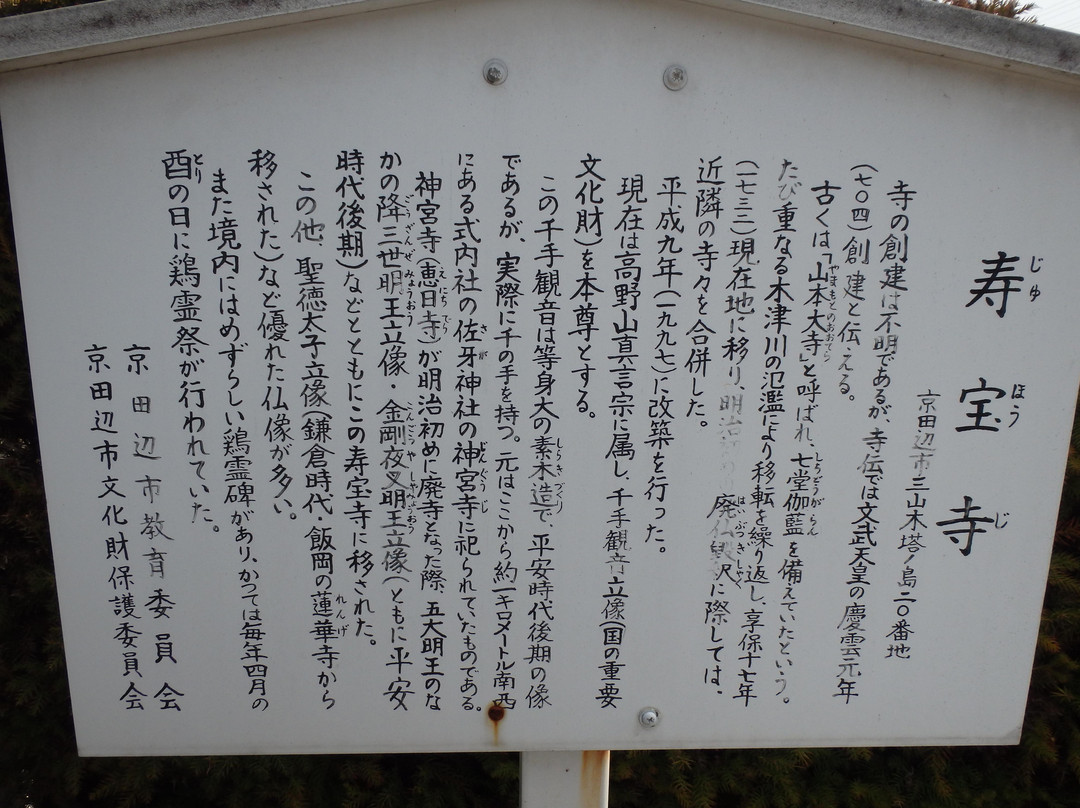 寿宝寺
じゅ ほう じ
京田辺市三山木塔ノ島二〇番地
寺の創建は不明であるが、寺伝では文武天皇の慶雲元年
(七〇四)創建と伝える。
古くは「山本大寺」と呼ばれ、七堂伽藍を備えていたという。
やまもとのおおてら しちどうがらん
たび重なる木津川の氾濫により移転を繰り返し、享保十七年
(一七三二)現在地に移り、明治 廃仏毀釈に際しては、
はいぶつきしゃく
近隣の寺々を合併した。
平成九年(一九九七)に改築を行った。
現在は高野山真言宗に属し、千手観音立像(国の重要
文化財)を本尊とする。
この千手観音は等身大の素木造で、平安時代後期の像
しらきづくり
であるが、実際に千の手を持つ。元はここから約一キロメートル南西
にある式内社の佐牙神社の神宮寺に祀られていたものである。
さが じんぐうじ
神宮寺(恵日寺)が明治初めに廃寺となった際、五大明王のな
えにちでら
かの降三世明王立像・金剛夜叉明王立像(ともに平安
ごうざんぜみょうおう こんごうやしゃみょうおう
時代後期)などとともにこの寿宝寺に移された。
この他、聖徳太子立像(鎌倉時代・飯岡の蓮華寺から
れんげ
移された)など優れた仏像が多い。
また境内にはめずらしい鶏霊碑があり、かつては毎年四月の
酉の日に鶏霊祭が行われていた。
とり
京田辺市教育委員会
京田辺市文化財保護委員会